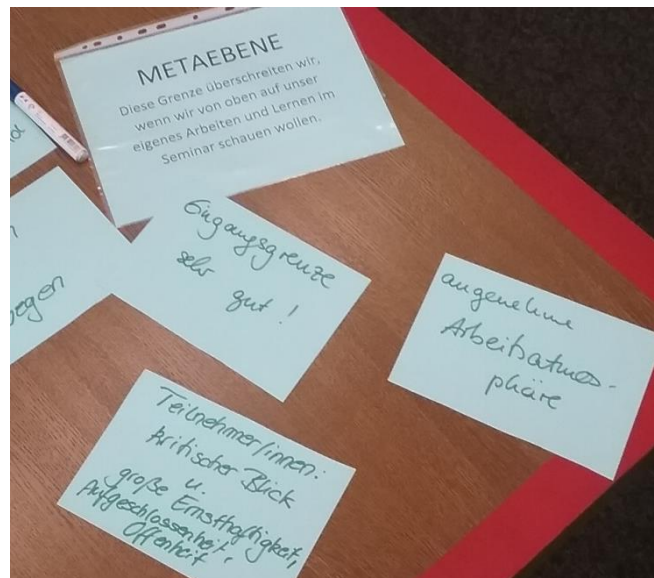 METAEBENE
Diese Grenze überschreiten wir,
wenn wir von oben auf unser
eigenes Arbeiten und Lernen im
Seminar schauen wollen.
Eingangsgrenze
sehr
gut !
angenehme
Arbeitsatmos-
phäre
Teilnehmer/innen:
kritischer Blick
u.
große Ernsthaftigkeit,
Aufgeschlossenheit,
Offenheit